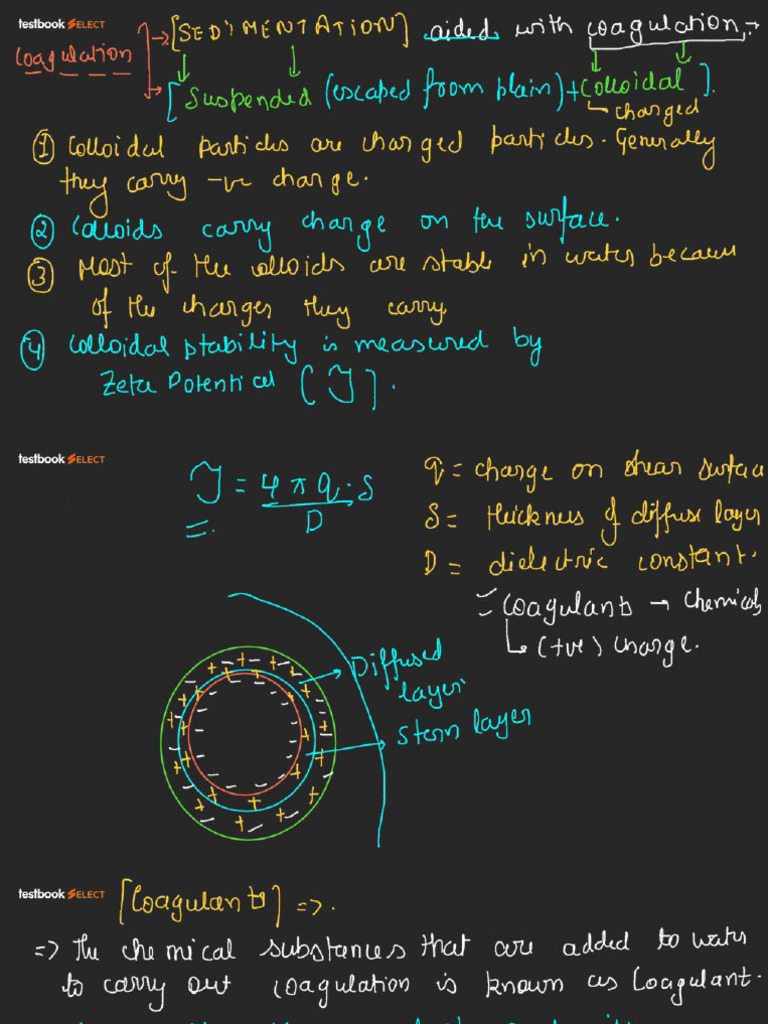 testbook SELECT
[SEDIMENTATION] aided with coagulation :→
Coagulation
[Suspended (escaped from plain) + Colloidal].
charged
① Colloidal particles are charged particles. Generally
they carry -ve charge.
② Colloids carry charge on the surface.
③ Most of the colloids are stable in water because
of the charges they carry.
④ Colloidal stability is measured by
Zeta Potential (ζ).
testbook SELECT
ζ = 4πq.δ
D
q = charge on shear surface
δ = thickness of diffuse layer
D = dielectric constant.
Coagulants → Chemicals
(+ve) charge.
Diffused
layer
Stern layer
testbook SELECT
[Coagulants] =>.
=> The chemical substances that are added to water
to carry out coagulation is known as Coagulant.